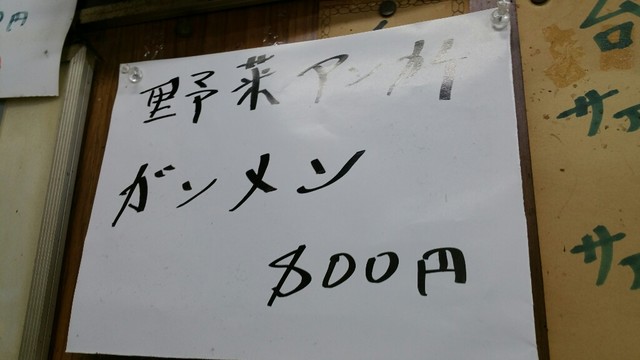 野菜アンカケ
ガンメン
800円
0円
台
サ
サ